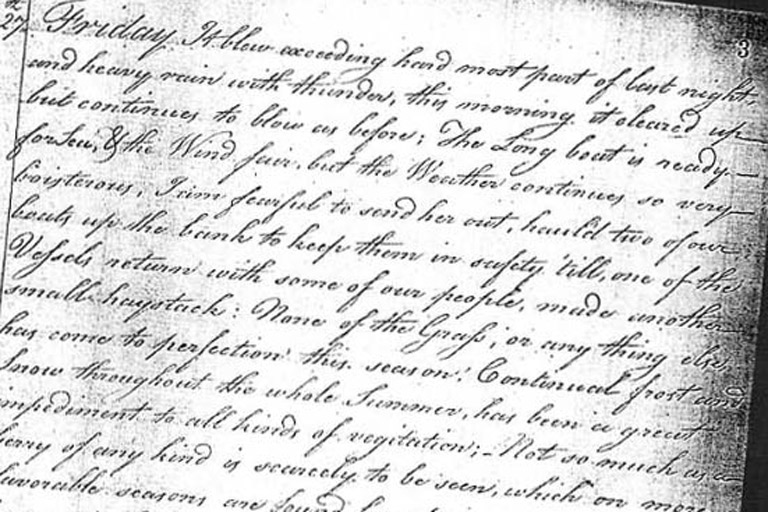 3
27 Friday It blew exceeding hard most part of last night,
and heavy rain with thunder, this morning it cleared up
but continues to blow as before; The Long boat is ready
for Sea, & the Wind fair, but the Weather continues so very
boisterous, I am fearful to send her out, hauld two of our
boats up the bank to keep them in safety 'till, one of the
Vessels return with some of our people, made another
small haystack: None of the Grass, or any thing else,
has come to perfection this season. Continual frost and
Snow throughout the whole Summer, has been a great
impediment to all kinds of vegitation; - Not so much as a
berry of any kind is scarcely to be seen, which on more
favorable seasons are found